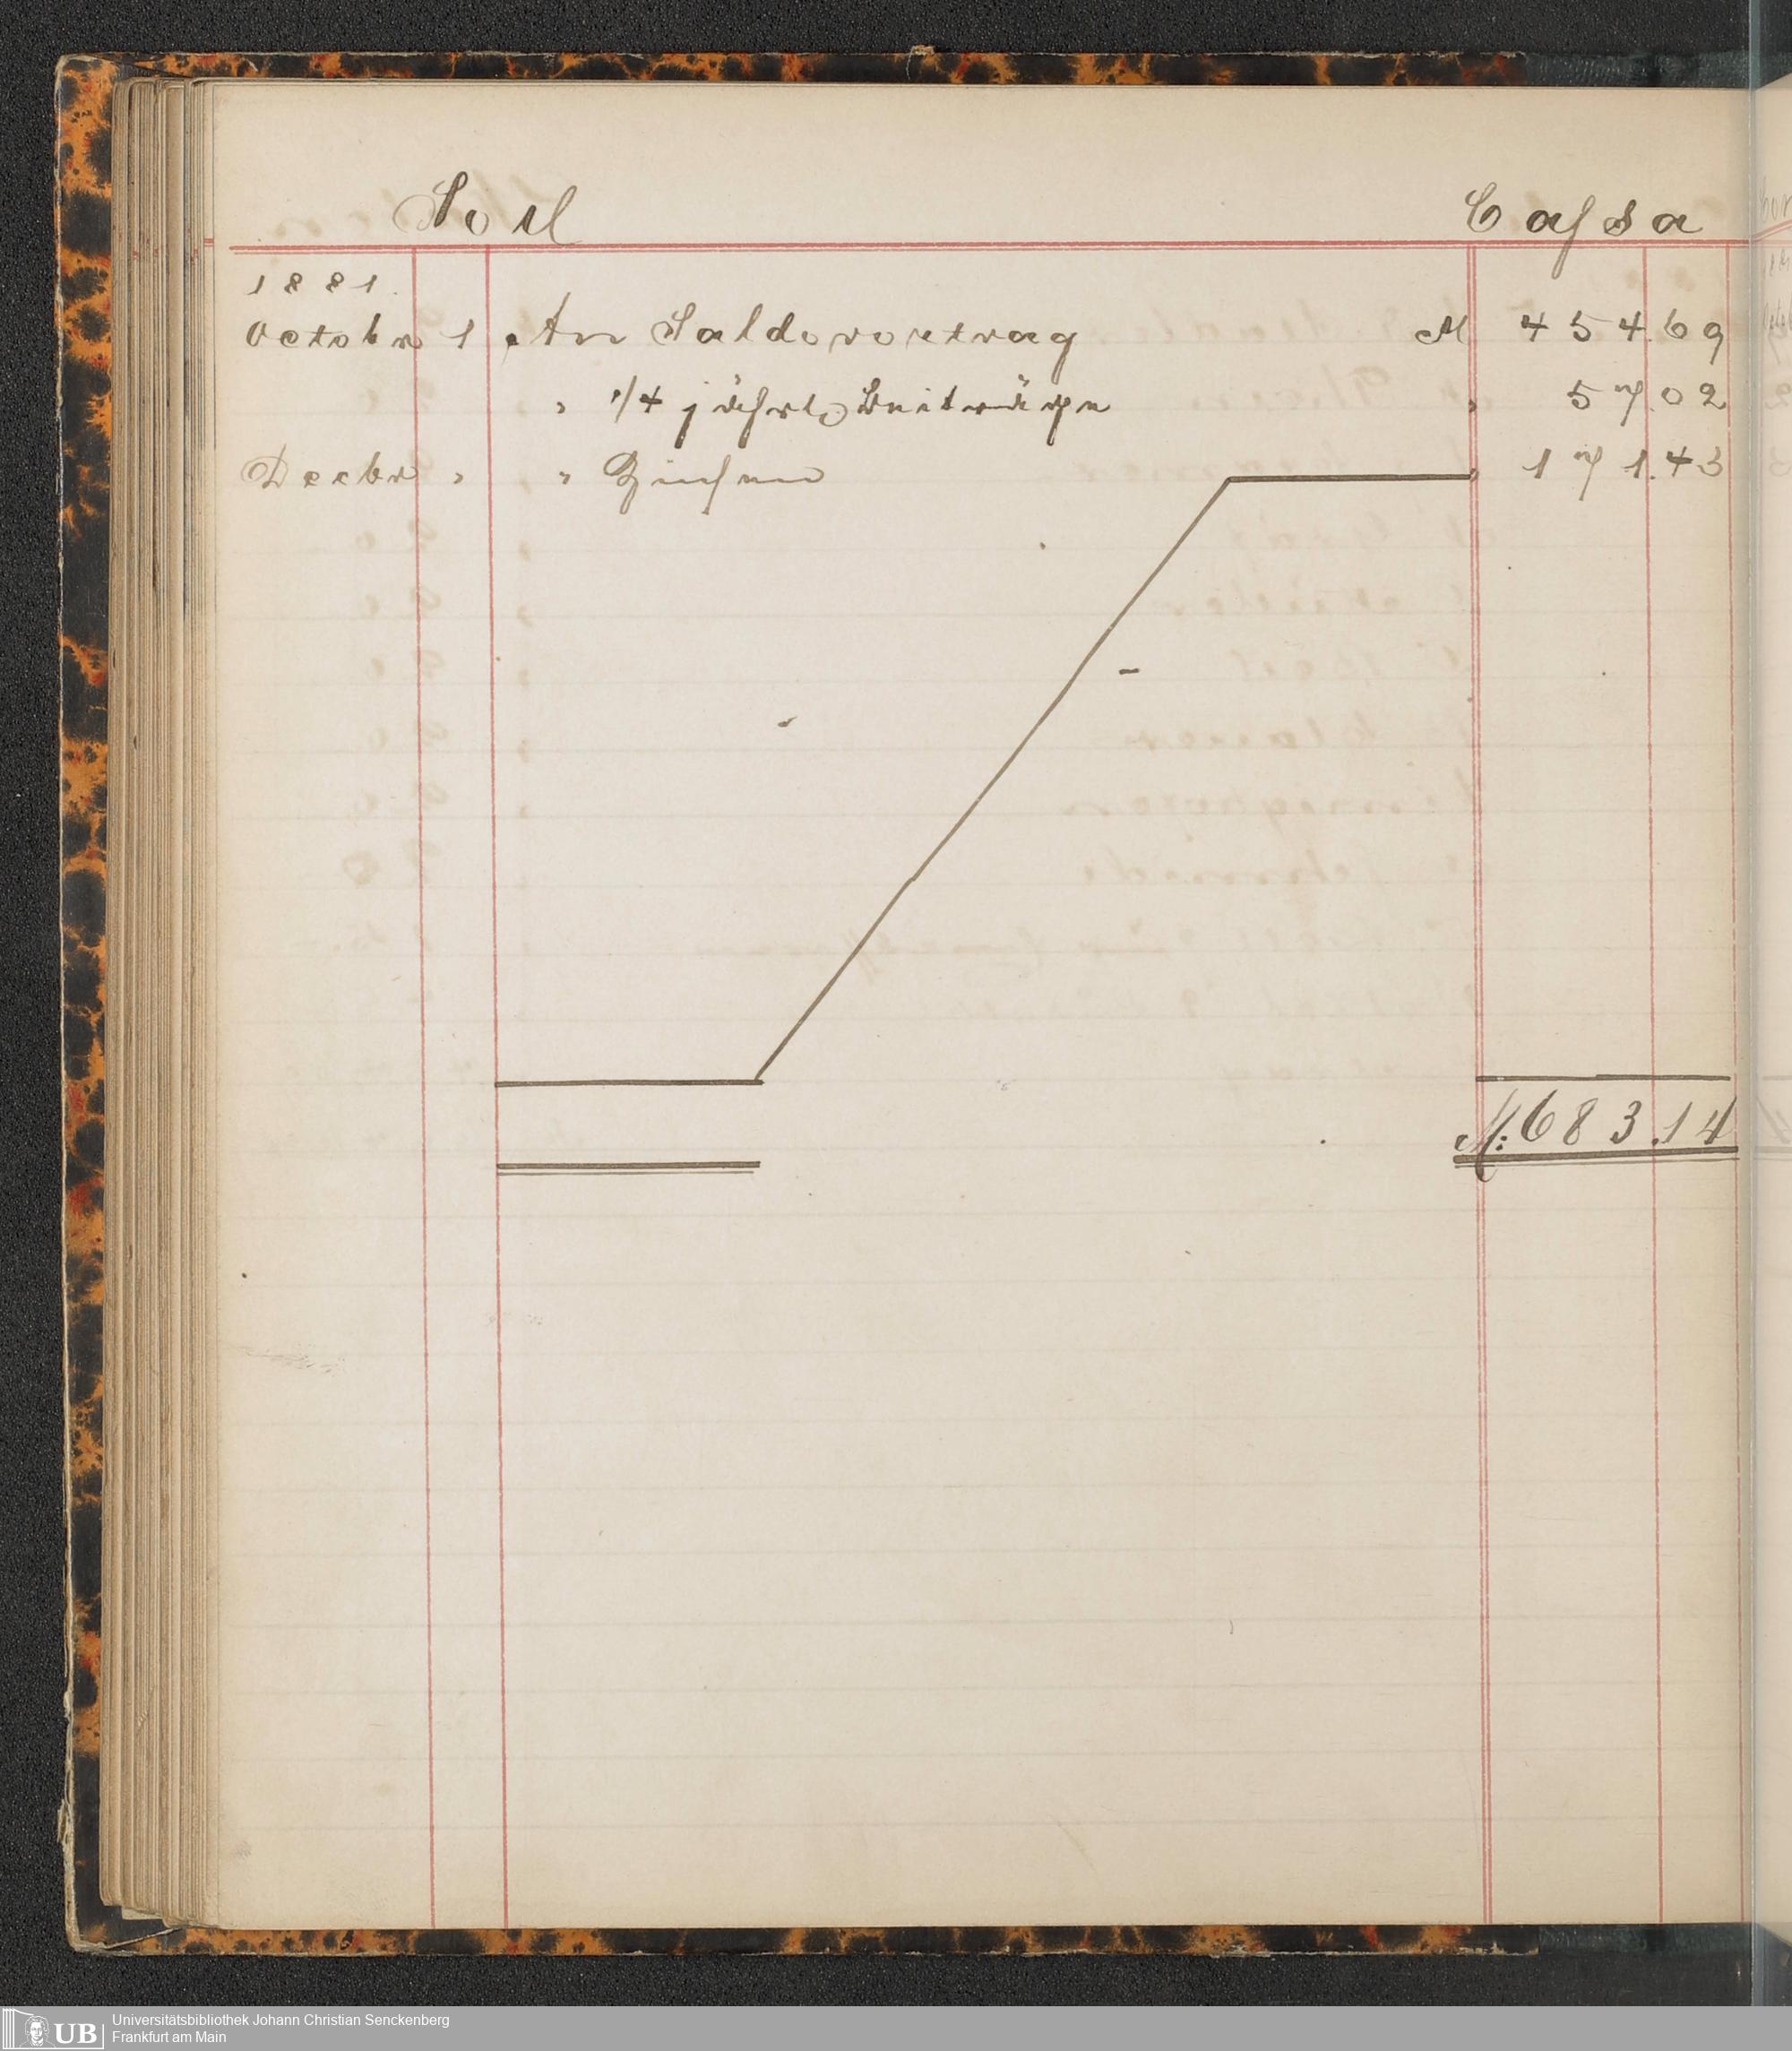 Soll Cassa
1881.
Octobr 1 An Saldovortrag M 454.69
" 1/4 jährl. Beiträge " 57.02
Decbr " " Zinsen " 171.43
M: 683.14
UB Universitätsbibliothek Johann Christian Senckenberg
Frankfurt am Main